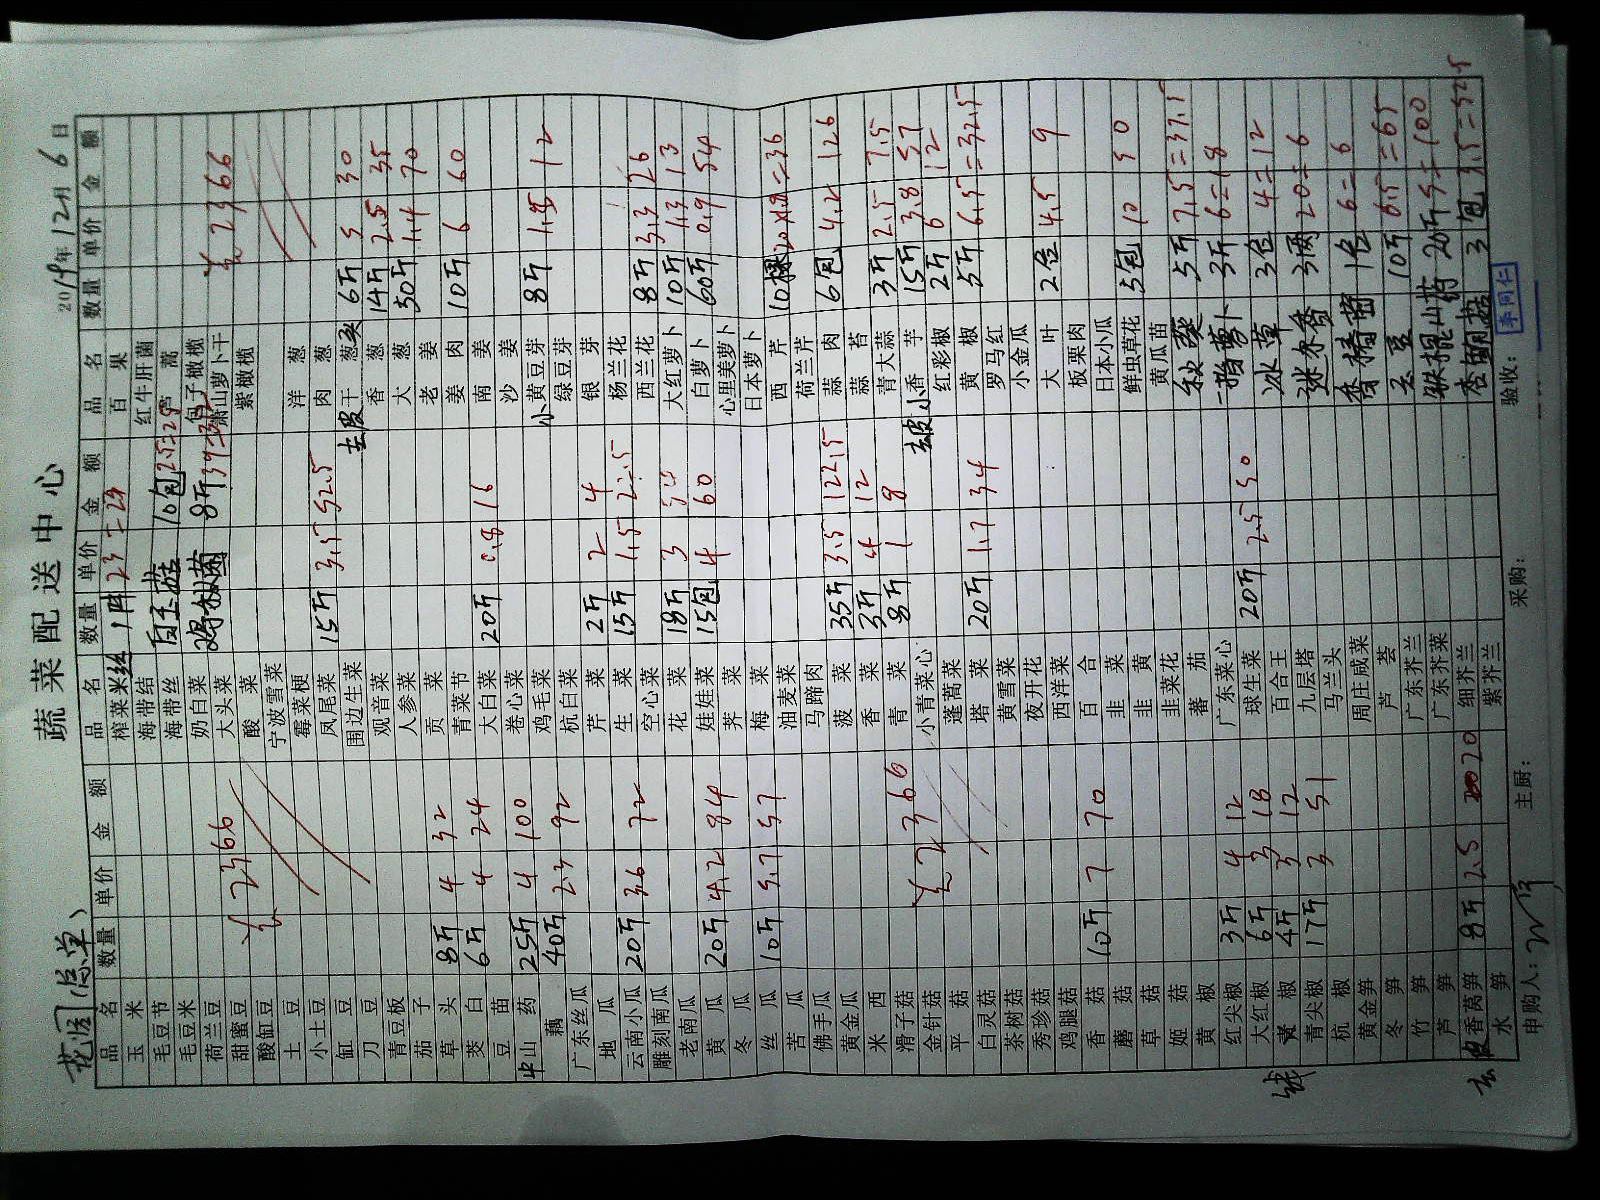 蔬菜配送中心
花园(总单) 2019年12月6日
品名 数量 单价 金额 品名 数量 单价 金额 品名 数量 单价 金额
玉米 榨菜米丝 1件 23=23 百果
毛豆节 海带结 红牛肝菌
毛豆米 海带丝 白玉菇 10包 2.5=25 芦蒿
荷兰豆 奶白菜 鸡枞菌 8斤 39=312 包子橄榄
甜蜜豆 ¥2366 大头菜 萧山萝卜干 ¥2366
酸缸豆 酸菜 紫橄榄
土豆 宁波雪菜
小土豆 霉菜梗 洋葱
缸豆 凤尾菜 15斤 3.5 52.5 肉葱
刀豆 围边生菜 去皮干葱头 6斤 5 30
青豆板 观音菜 香葱 14斤 2.5 35
茄子 人参菜 大葱 50斤 1.4 70
草头 8斤 4 32 贡菜 老姜
茭白 6斤 4 24 青菜节 姜肉 10斤 6 60
豆苗 大白菜 20斤 0.8 16 南姜
山药 25斤 4 100 卷心菜 沙姜
藕 40斤 2.3 92 鸡毛菜 小黄豆芽 8斤 1.5 12
广东丝瓜 杭白菜 绿豆芽
地瓜 芹菜 2斤 2 4 银芽
云南小瓜 20斤 3.6 72 生菜 15斤 1.5 22.5 杨兰花
雕刻南瓜 空心菜 西兰花 8斤 3.3 26
老南瓜 花菜 18斤 3 54 大红萝卜 10斤 1.3 13
黄瓜 20斤 4.2 84 娃娃菜 15包 4 60 白萝卜 60斤 0.9 54
冬瓜 荠菜 心里美萝卜
丝瓜 10斤 5.7 57 梅菜 日本萝卜
苦瓜 油麦菜 西芹 10棵 =36
佛手瓜 马蹄肉 荷兰芹
黄金瓜 菠菜 35斤 3.5 122.5 蒜肉 6包 4.2 126
米西 香菜 3斤 4 12 蒜苔
滑子菇 青菜 8斤 1 8 青大蒜 3斤 2.5 7.5
金针菇 ¥2366 小青菜心 去皮小香芋 15斤 3.8 57
平菇 蓬蒿菜 红彩椒 2斤 6 12
白灵菇 塔菜 20斤 1.7 34 黄椒 5斤 6.5=32.5
茶树菇 黄雪菜 罗马红
秀珍菇 夜开花 小金瓜
鸡腿菇 西洋菜 大叶 2位 4.5 9
香菇 10斤 7 70 百合 板栗肉
蘑菇 韭菜 日本小瓜
草菇 韭黄 鲜虫草花 5包 10 50
姬菇 韭菜花 黄瓜苗
黄椒 番茄 秋葵 5斤 7.5=37.5
红尖椒 3斤 4 12 广东菜心 一指萝卜 3斤 6=18
大红椒 6斤 3 18 球生菜 20斤 2.5 50 冰草 3位 4=12
椒 4斤 3 12 百合王 迷迭香 3两 20=6
青尖椒 17斤 3 51 九层塔
杭椒 马兰头 1位 6=6
黄金笋 周庄咸菜 玉豆 10斤 6.5=65
冬笋 芦荟
竹笋 广东芥兰 铁棍山药 20斤 5=100
芦笋 广东芥菜
去皮香莴笋 8斤 2.5 20 细芥兰 杏鲍菇 3包 3.5=
水笋 紫芥兰
申购人: 主厨: 采购: 验收: 李同仁